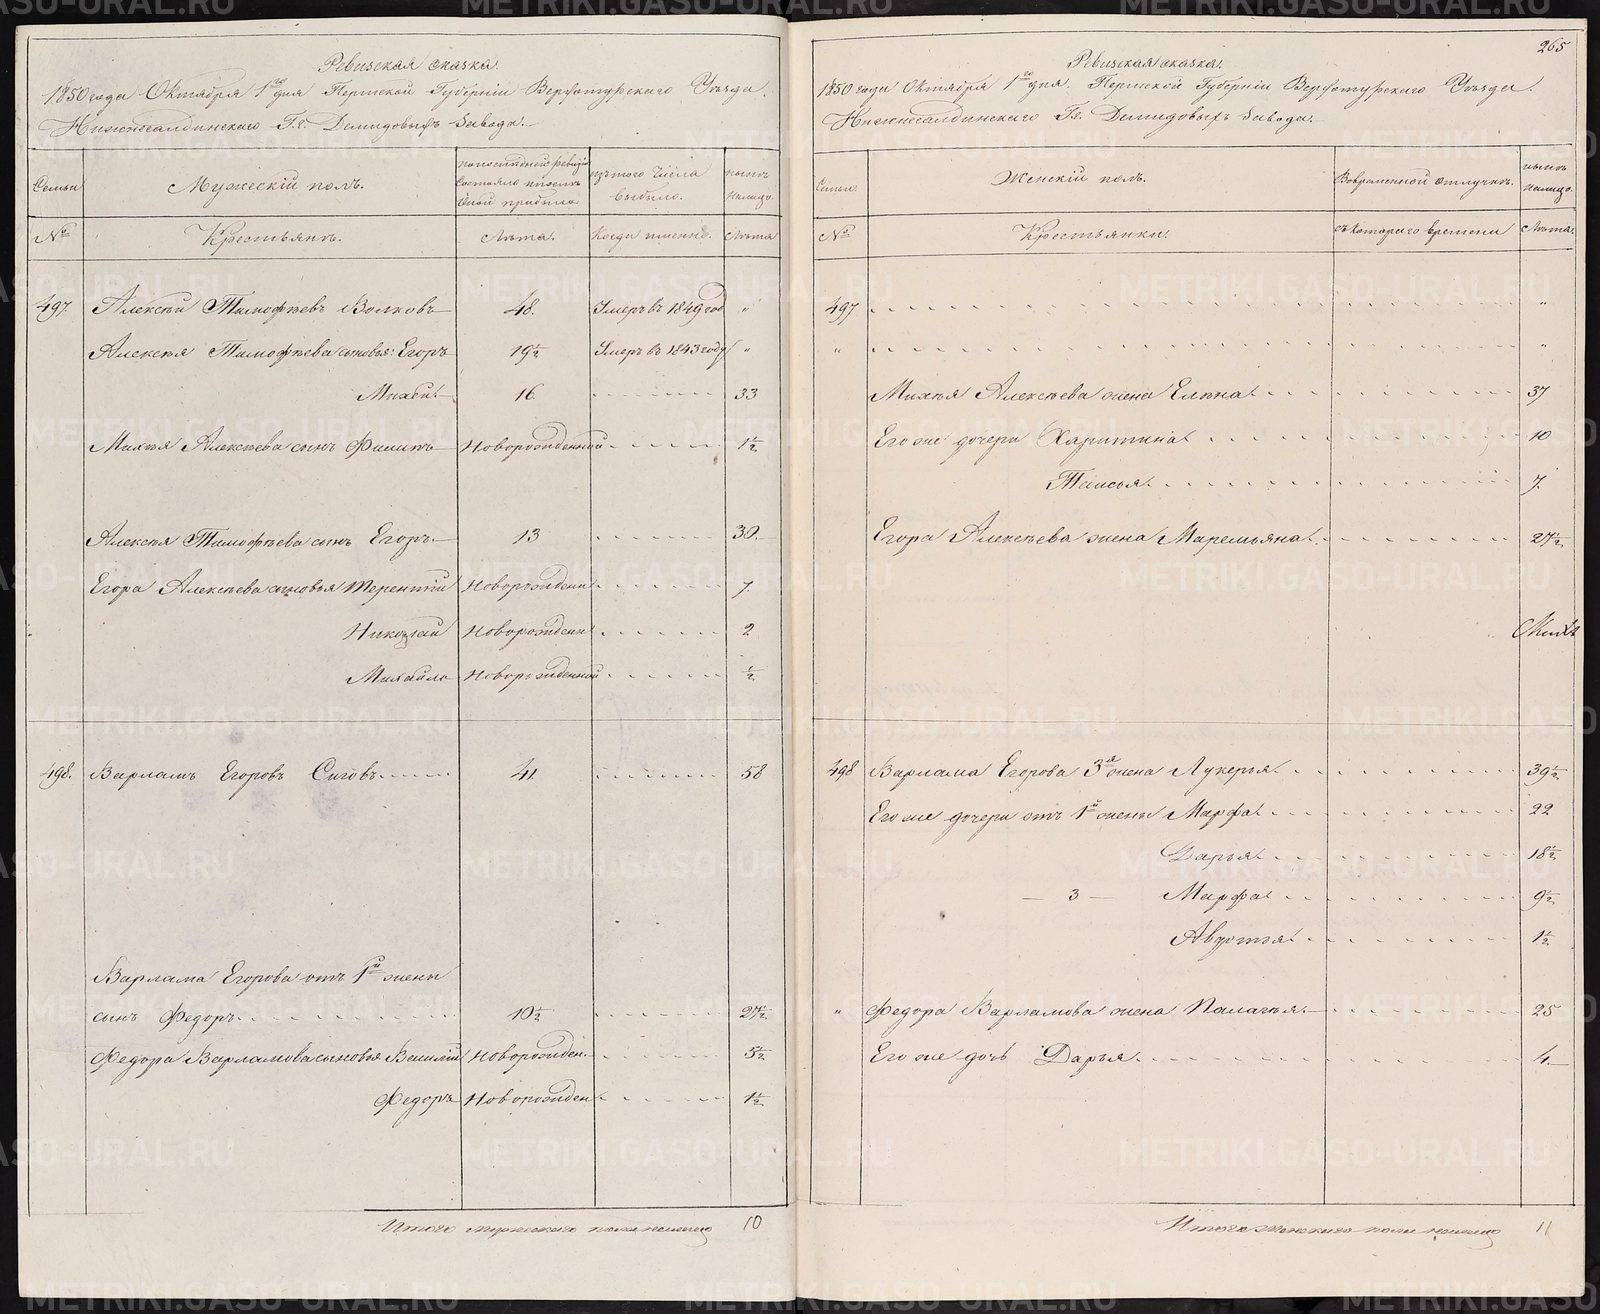 Ревизская сказка.
1850 года Октября 1го дня Пермской Губернiи Верхотурскаго Уѣзда.
Нижнесалдинскаго Г.г. Демидовыхъ Завода.
Семьи
Мужескiй полъ.
по последней ревизiи состояло и после оной прибыло
изъ того числа выбыло.
нынѣ на лицо.
№
Крестьянъ.
Лѣта.
Когда именно.
Лѣта
497. Алексѣй Тимофѣевъ Волковъ 48. Умеръ въ 1849 году "
Алексѣя Тимофѣева сыновья: Егоръ 19½ Умеръ въ 1843 году "
Михѣй 16. 33
Михѣя Алексѣева сынъ Филипъ Новорожденной 1½
Алексѣя Тимофѣева сынъ Егоръ 13 30.
Егора Алексѣева сыновья Терентiй Новорожденн 7.
Николай Новорожденн 2
Михайло Новорожденной ½
498. Варламъ Егоровъ Сиговъ 41. 58
Варлама Егорова отъ 1й жены
сынъ Федоръ 10½ 27½
Федора Варламова сыновья Василiй Новорожден. 5½
Федоръ Новорожден 1½
Итого мужескаго пола налицо 10
265
Ревизская сказка.
1850 года Октября 1го дня. Пермской Губернiи Верхотурскаго Уѣзда.
Нижнесалдинскаго Гг. Демидовыхъ Завода.
Семьи.
Женскiй полъ.
Во временной отлучкѣ.
нынѣ налицо.
№
Крестьянки.
съ котораго времени
Лѣта.
497 "
" "
Михѣя Алексѣева жена Елена 37
Его же дочери Харитина 10
Таисья 7.
Егора Алексѣева жена Маремьяна 27½
498 Варлама Егорова 3я жена Лукерья 39½
Его же дочери отъ 1й жены Марфа 22
Дарья 18½
— 3 — Марфа 9½
Авдотья 1½
" Федора Варламова жена Палагья 25
Его же дочь Дарья 4.
Итого женскаго пола налицо 11
METRIKI.GASO-URAL.RU